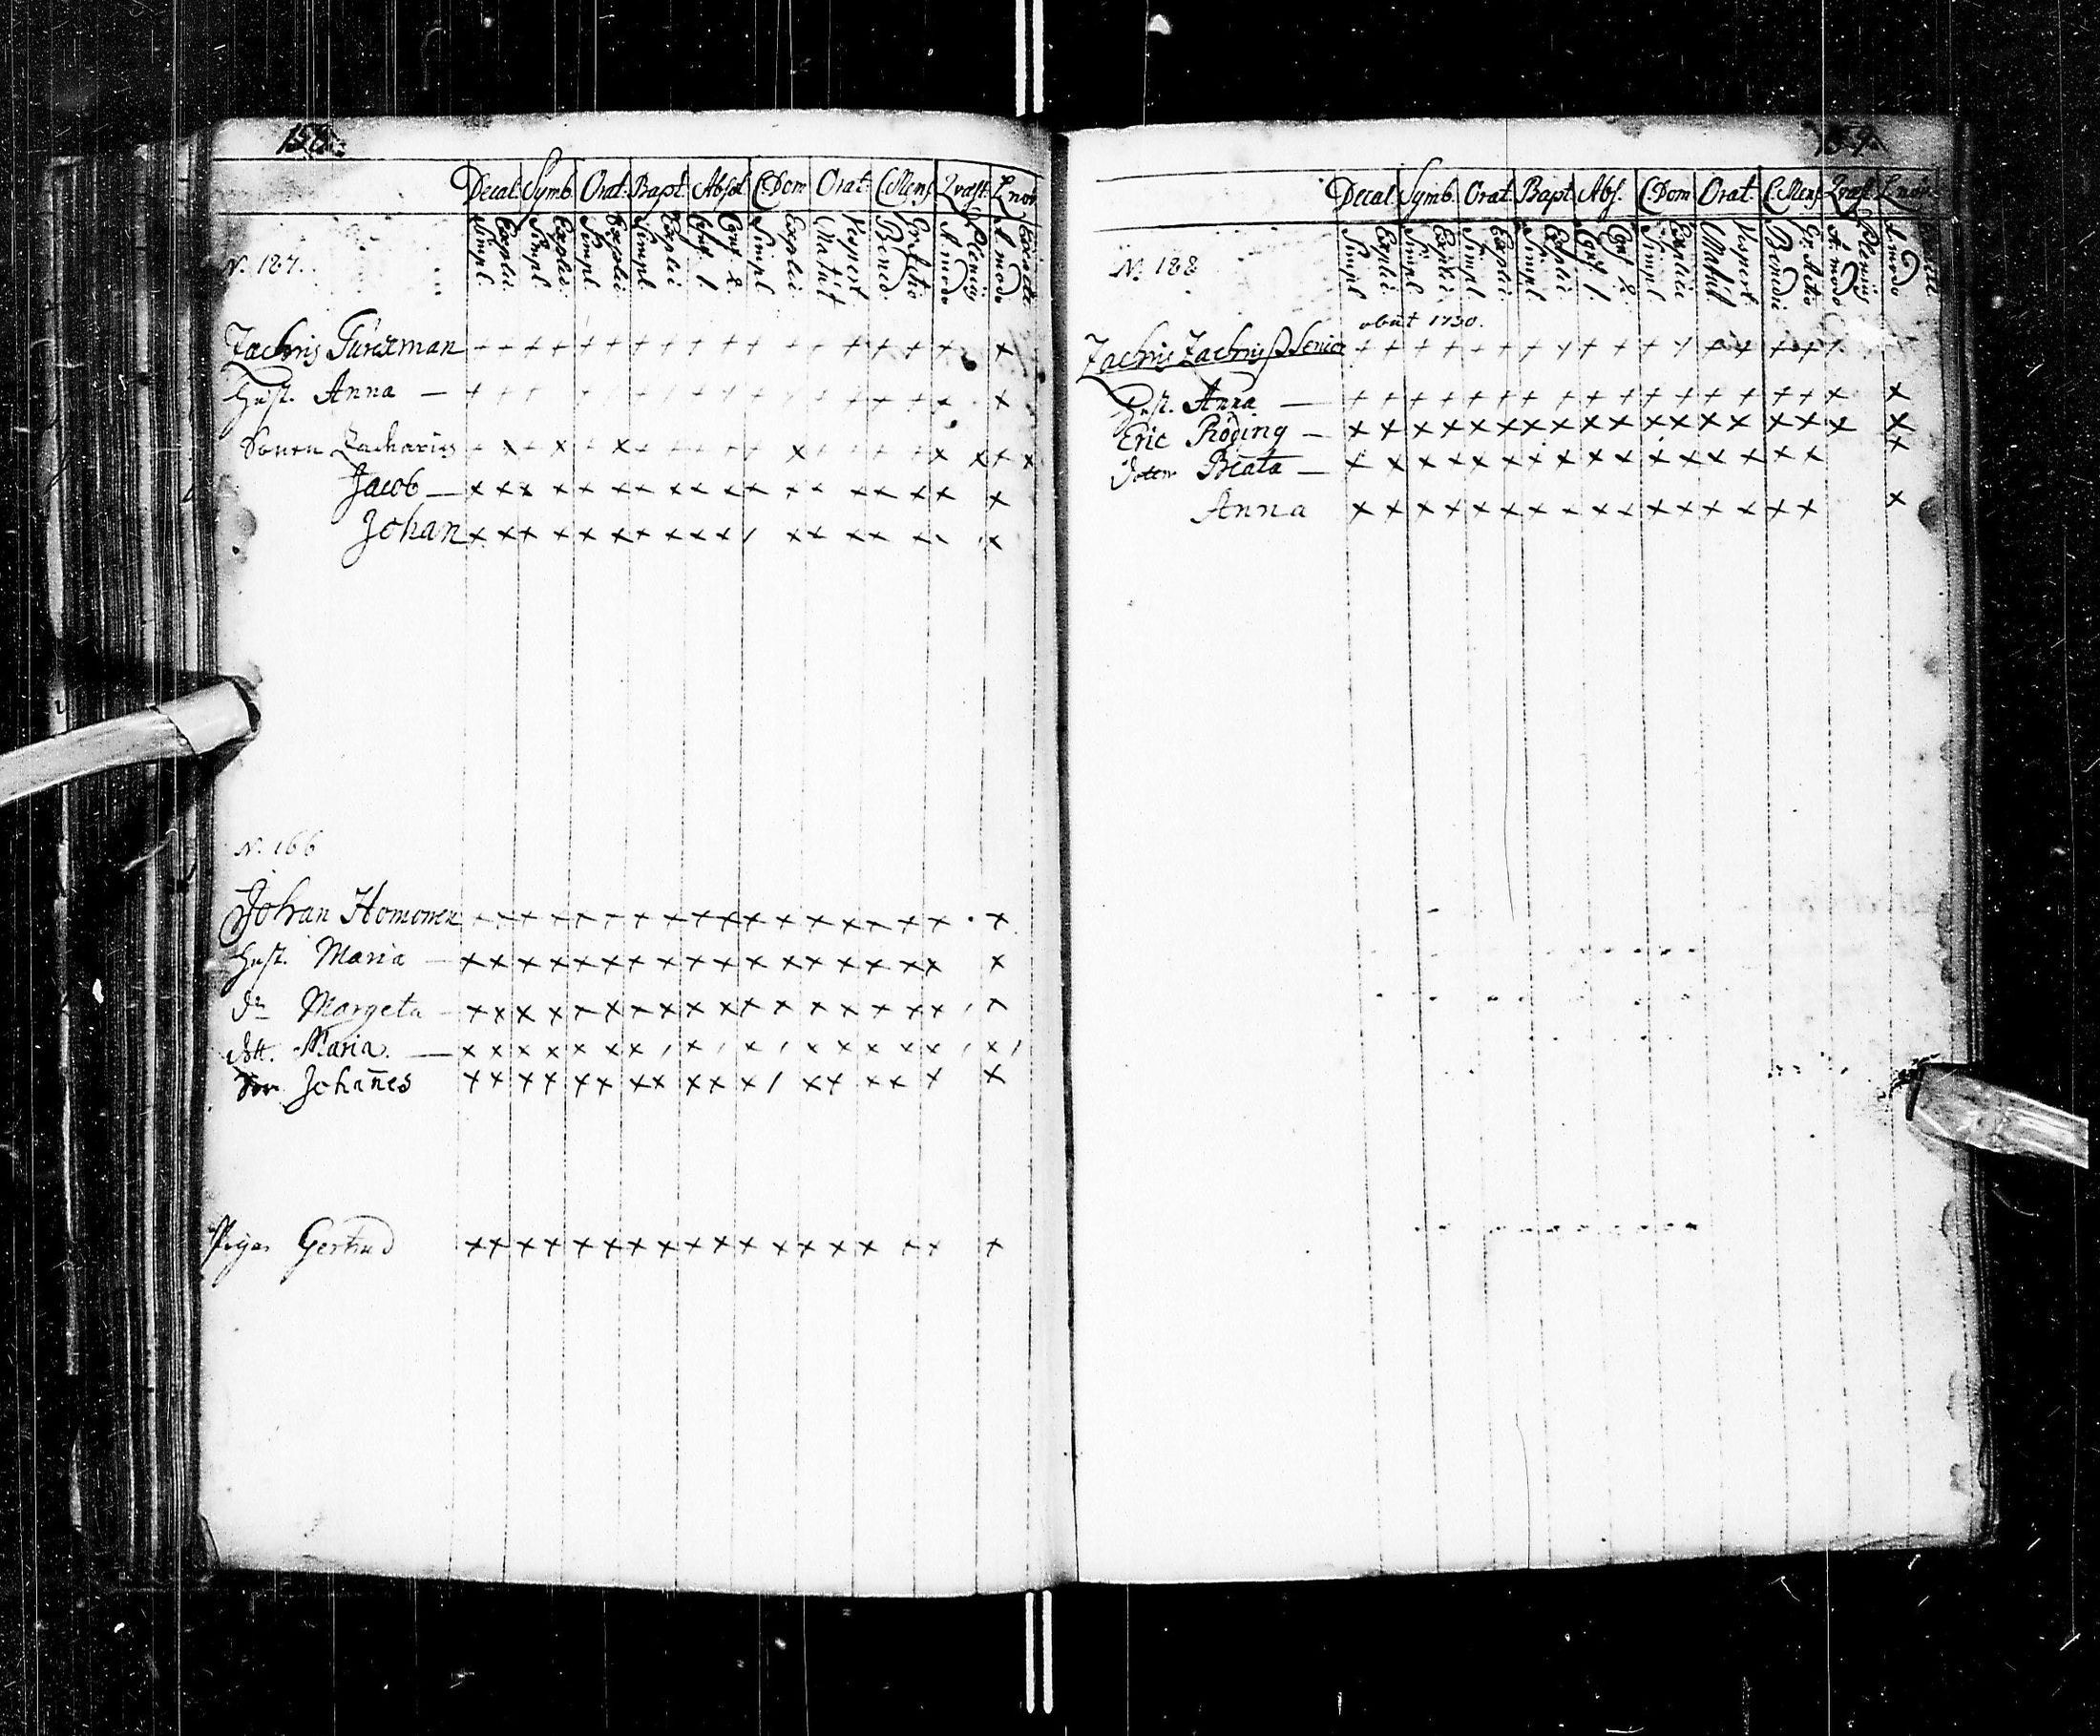 Decal. Symb. Orat. Bapt. Absol. C. Dom Orat. C. Mens. Qvæst.
Simpl. Explic. Simpl. Explic. Simpl. Explic. Simpl. Explic. Conf. 1. Conf. 2. Simpl. Explic. Matut. Vespert. Bened. A. modo Plenius A. modo
N. 187.
Zachris
Hust. Anna —
Sonen Zacharias
Jacob —
Johan
N. 166
Johan Homonen
Hust. Maria —
Dr Margeta —
dott. Maria. —
Son Johañes
Pigan Gertrud
Decal Symb. Orat. Bapt. Abs. C. Dom Orat. C. Mens. Qvæst
Simpl Explic. Simpl Explic. Simpl Explic. Simpl Explic. Conf. 1. Conf. 2. Simpl Explic Matut Vespert. Benedic Gr. Actio A. modo Plenius A. modo
N. 188
obiit 1730.
Zachris Zachrisß Senior
Hust. Anna —
Eric Röding —
Dotter Beata —
Anna